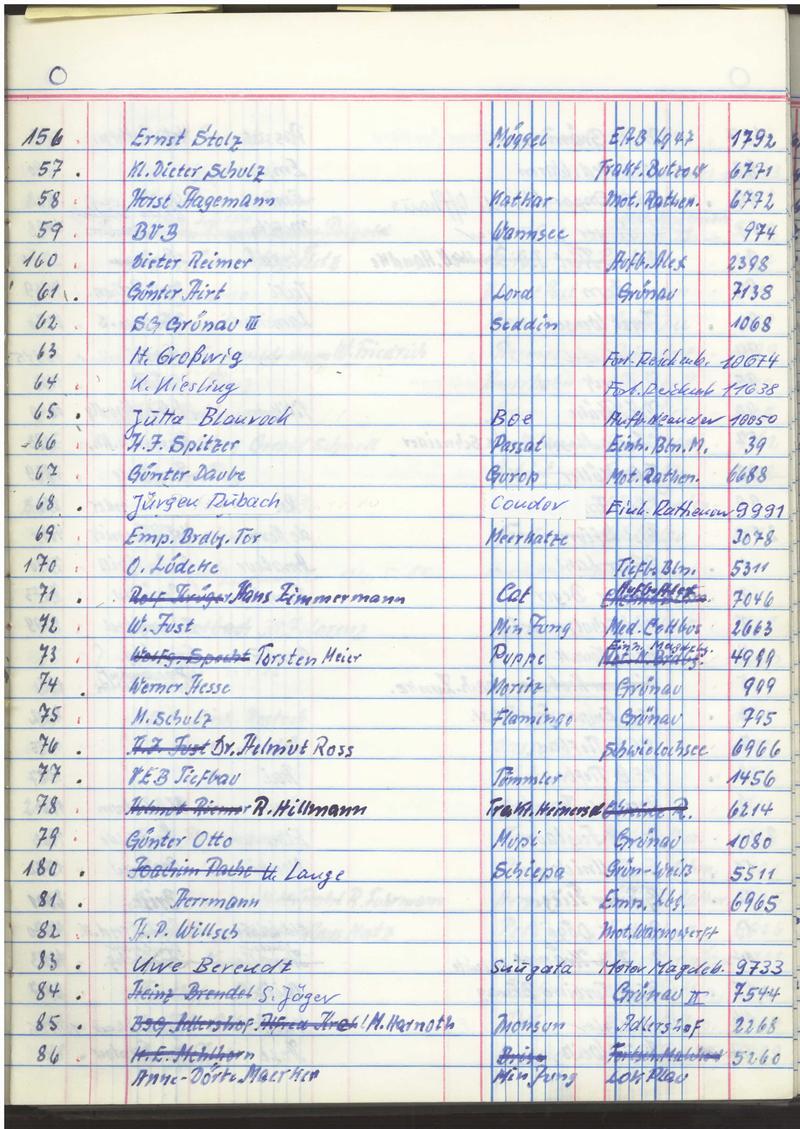 O
156 Ernst Stolz Müggel EAB Lg 47 1792
57 Kl. Dieter Schulz Trakt. Butzow 6771
58 Horst Hagemann Kathar Mot. Rathen. 6772
59 BVB Wannsee 974
160 Dieter Reimer Aufb. Alex 2398
61 Günter Hirt Lord Grünau 7138
62 SG Grünau III Seddin 1068
63 H. Großwig Fort. Reichenb. 10674
64 K. Kiesling Fort. Reichenb 11638
65 Jutta Blaurock Boe Aufb. Neander 10050
66 H.F. Spitzer Passat Einh. Bln. M. 39
67 Günter Daube Mot. Rathen. 6688
68 Jürgen Dubach Condor Einh. Rathenow 9991
69 Emp. Brdbg. Tor Meerkatze 3078
170 O. Lüdcke Tiefb. Bln. 5311
71 Rolf Krüger Hans Zimmermann Cat Aufb. Alex 7046
72 W. Fust Min Jung Med. Cottbus 2663
73 Wolfg. Specht Torsten Meier Puppe Einh. Magdebg. Mot. N. Brdbg. 4999
74 Werner Hesse Moritz Grünau 999
75 M. Schulz Flamingo Grünau 795
76 H.J. Fust Dr. Helmut Ross Schwielochsee 6966
77 VEB Tiefbau Tümmler 1456
78 Helmut Riemer R. Hillmann Trakt. Heinersd 6214
79 Günter Otto Mupi Grünau 1080
180 Joachim Pache U. Lange Schiepa Grün-Weiß 5511
81 Herrmann Emp. Lbg. 6965
82 H.P. Willsch Mot. Warnowerft
83 Uwe Berendt Motor Magdeb. 9733
84 Heinz Brendel S. Jäger Grünau II 7544
85 BSG Adlershof M. Harnoth Monsun Adlershof 2268
86 H.E. Mehlhorn Brise 5260
Anne-Dörte Maerker Min Jung Lok Plau